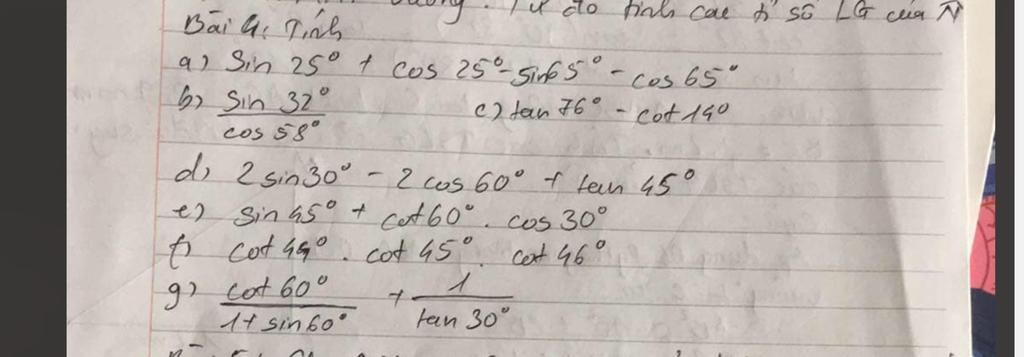 . Từ đó tính các tỉ số LG của N
Bài 4: Tính
a) Sin 25° + cos 25° - sin 65° - cos 65°
b) sin 32° / cos 58° c) tan 76° - cot 14°
d) 2 sin 30° - 2 cos 60° + tan 45°
e) sin 45° + cot 60° . cos 30°
f) cot 44° . cot 45° . cot 46°
g) cot 60° / 1 + sin 60° + 1 / tan 30°